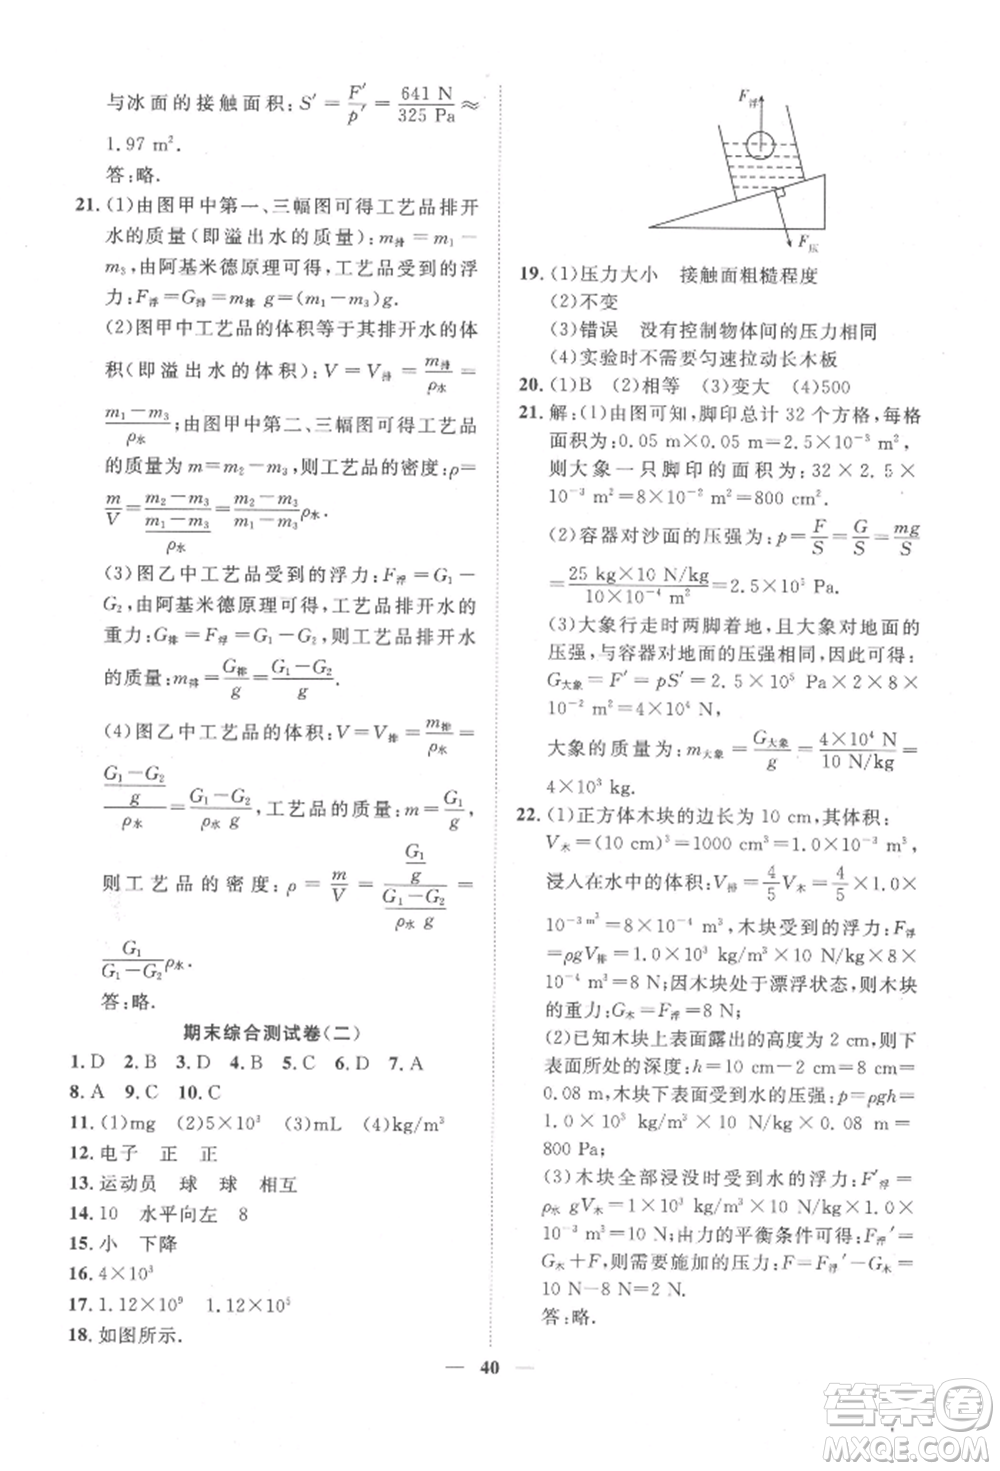 与冰面的接触面积:S′=F′/p′=641 N/325 Pa≈
1.97 m².
答:略.
21.(1)由图甲中第一、三幅图可得工艺品排开
水的质量(即溢出水的质量):m排=m₁-
m₃,由阿基米德原理可得工艺品受到的浮
力:F浮=G排=m排 g=(m₁-m₃)g.
(2)图甲中工艺品的体积等于其排开水的体
积(即溢出水的体积):V=V排=m排/ρ水=
(m₁-m₃)/ρ水;由图甲中第二、三幅图可得工艺品
的质量m=m₂-m₃,则工艺品的密度:ρ=
m/V=(m₂-m₃)/((m₁-m₃)/ρ水)=(m₂-m₃)/(m₁-m₃)ρ水.
(3)图乙中工艺品受到的浮力:F浮=G₁-
G₂,由阿基米德原理可得工艺品排开水的
重力:G排=F浮=G₁-G₂,则工艺品排开水
的质量:m排=G排/g=(G₁-G₂)/g.
(4)图乙中工艺品的体积:V=V排=m排/ρ水=
((G₁-G₂)/g)/ρ水=(G₁-G₂)/(ρ水 g),工艺品的质量:m=G₁/g,
则工艺品的密度:ρ=m/V=(G₁/g)/((G₁-G₂)/(ρ水 g))=
G₁/(G₁-G₂)ρ水.
答:略.
期末综合测试卷(二)
1.D 2.B 3.D 4.B 5.C 6.D 7.A
8.A 9.C 10.C
11.(1)mg (2)5×10³ (3)mL (4)kg/m³
12.电子 正 正
13.运动员 球 球 相互
14.10 水平向左 8
15.小 下降
16.4×10³
17.1.12×10⁹ 1.12×10⁵
18.如图所示.
F浮
F压
19.(1)压力大小 接触面粗糙程度
(2)不变
(3)错误 没有控制物体间的压力相同
(4)实验时不需要匀速拉动长木板
20.(1)B (2)相等 (3)变大 (4)500
21.解:(1)由图可知,脚印总计 32 个方格,每格
面积为:0.05 m×0.05 m=2.5×10⁻³ m²,
则大象一只脚印的面积为:32×2.5×
10⁻³ m²=8×10⁻² m²=800 cm².
(2)容器对沙面的压强为:p=F/S=G/S=mg/S
=(25 kg×10 N/kg)/(10×10⁻⁴ m²)=2.5×10⁵ Pa.
(3)大象行走时两脚着地,且大象对地面的
压强,与容器对地面的压强相同,因此可得:
G大象=F′=pS′=2.5×10⁵ Pa×2×8×
10⁻² m²=4×10⁴ N,
大象的质量为:m大象=G大象/g=(4×10⁴ N)/(10 N/kg)=
4×10³ kg.
22.(1)正方体木块的边长为 10 cm,其体积:
V木=(10 cm)³=1000 cm³=1.0×10⁻³ m³,
浸入在水中的体积:V排=4/5V木=4/5×1.0×
10⁻³ m³=8×10⁻⁴ m³,木块受到的浮力:F浮
=ρgV排=1.0×10³ kg/m³×10 N/kg×8×
10⁻⁴ m³=8 N;因木块处于漂浮状态,则木块
的重力:G木=F浮=8 N;
(2)已知木块上表面露出的高度为 2 cm,则下
表面所处的深度:h=10 cm-2 cm=8 cm=
0.08 m,木块下表面受到水的压强:p=ρgh=
1.0×10³ kg/m³×10 N/kg×0.08 m=
800 Pa;
(3)木块全部浸没时受到水的浮力:F′浮=
ρ水 gV木=1.0×10³ kg/m³×10 N/kg×1.0×
10⁻³ m³=10 N;由力的平衡条件可得:F浮′=
G木+F,则需要施加的压力:F=F浮′-G木=
10 N-8 N=2 N.
答:略.
40
答案卷
MXQE.COM